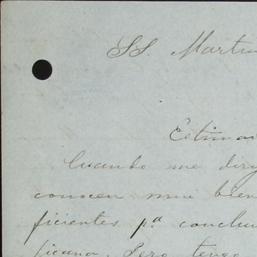 SS. Martin
Estima
Cuando me diri
conocen mui bien
ficientes pª conclui
ficana. Pero tengo